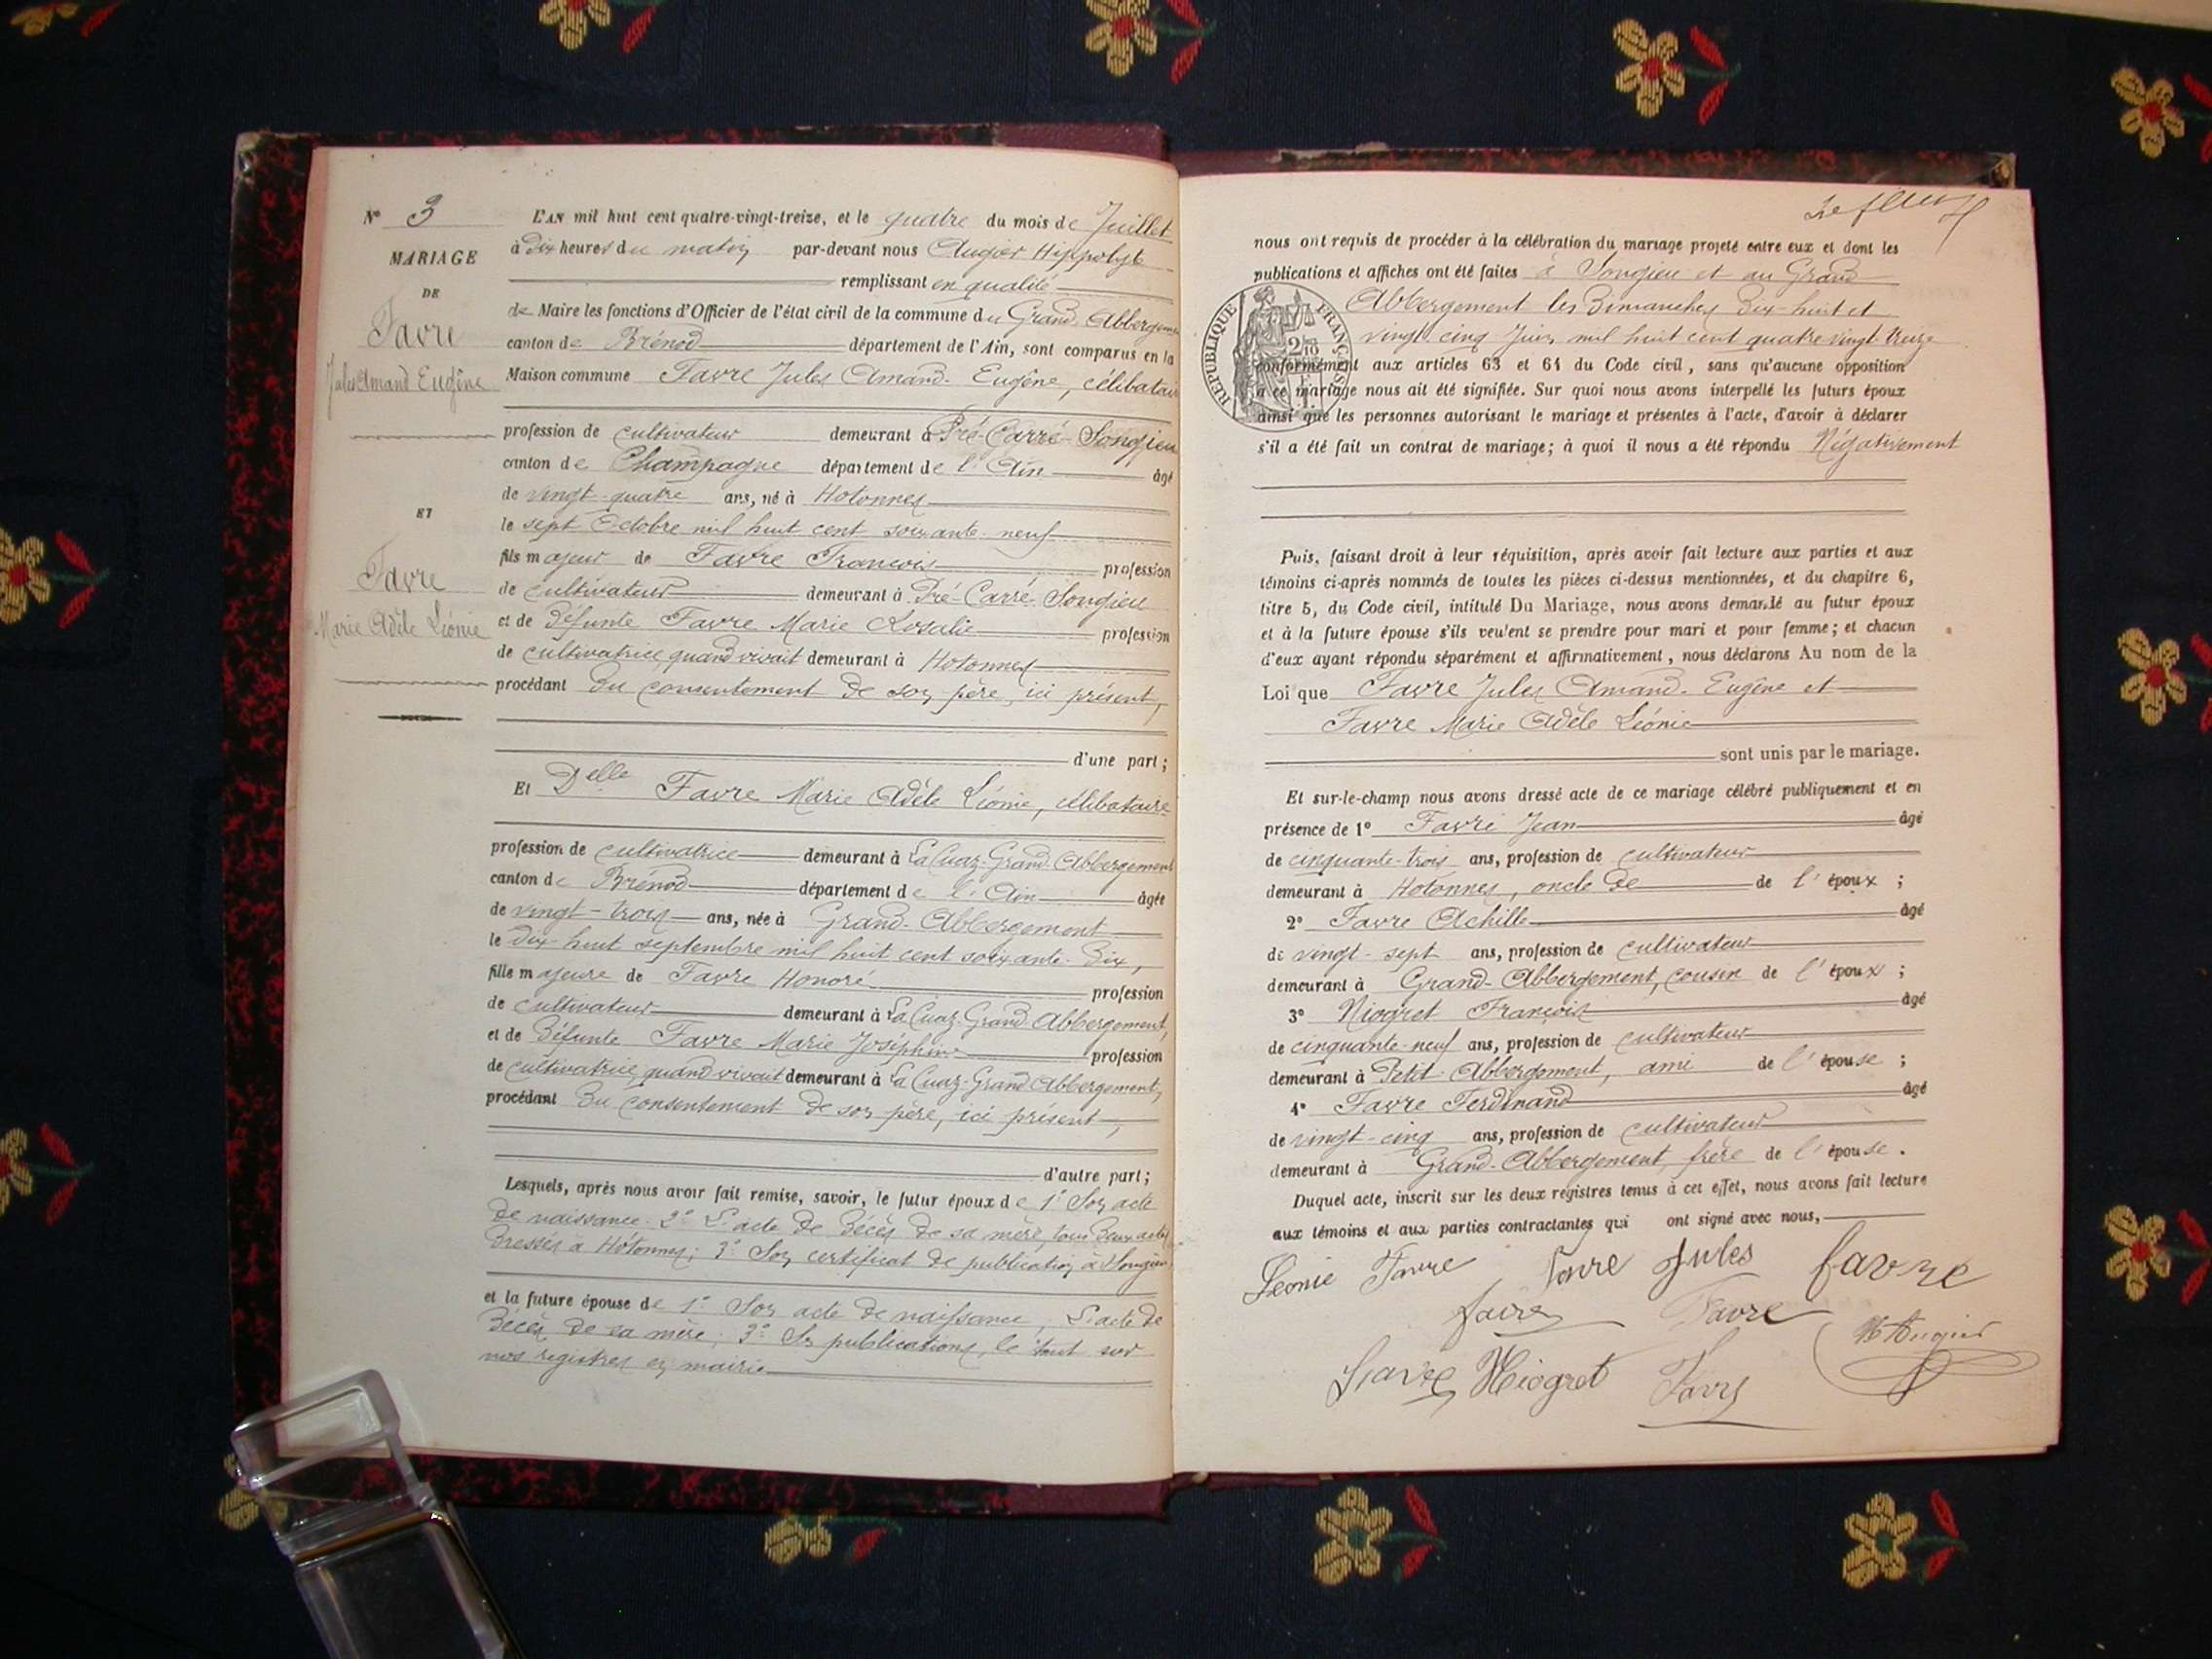 N° 3
MARIAGE
DE
Favre
Jules Amand Eugène
ET
Favre
Marie Adèle Léonie
L'AN mil huit cent quatre-vingt-treize, et le quatre du mois de Juillet
à dix heures du matin par-devant nous Augier Hippolyte
remplissant en qualité
de Maire les fonctions d'Officier de l'état civil de la commune du Grand Abbergement
canton de Brénod département de l'Ain, sont comparus en la
Maison commune Favre Jules Amand-Eugène, célibataire
profession de cultivateur demeurant à Pré-Carré-Songieu
canton de Champagne département de l'Ain âgé
de vingt-quatre ans, né à Hotonnes
le sept Octobre mil huit cent soixante-neuf
fils majeur de Favre François profession
de cultivateur demeurant à Pré-Carré Songieu
et de défunte Favre Marie Rosalie profession
de cultivatrice quand vivait demeurant à Hotonnes
procédant du consentement de son père, ici présent,
d'une part;
Et Delle Favre Marie Adèle Léonie, célibataire
profession de cultivatrice demeurant à La Cuaz-Grand Abbergement
canton de Brénod département de l'Ain âgée
de vingt-trois ans, née à Grand-Abbergement
le dix-huit septembre mil huit cent soixante-dix,
fille majeure de Favre Honoré profession
de cultivateur demeurant à La Cuaz-Grand Abbergement,
et de défunte Favre Marie Joséphine profession
de cultivatrice, quand vivait demeurant à La Cuaz-Grand Abbergement,
procédant du consentement de son père, ici présent,
d'autre part;
Lesquels, après nous avoir fait remise, savoir, le futur époux de 1° Son acte
de naissance. 2° L'acte de décès de sa mère, tous deux actes
dressés à Hotonnes; 3° Son certificat de publication à Songieu
et la future épouse de 1° Son acte de naissance, L'acte de
décès de sa mère; 3° Ses publications, le tout sur
nos registres en mairie
nous ont requis de procéder à la célébration du mariage projeté entre eux et dont les
publications et affiches ont été faites à Songieu et au Grand
Abbergement les Dimanches Dix-huit et
vingt-cinq Juin mil huit cent quatre vingt-treize
RÉPUBLIQUE FRANÇAISE
conformément aux articles 63 et 64 du Code civil, sans qu'aucune opposition
à ce mariage nous ait été signifiée. Sur quoi nous avons interpellé les futurs époux
ainsi que les personnes autorisant le mariage et présentes à l'acte, d'avoir à déclarer
s'il a été fait un contrat de mariage; à quoi il nous a été répondu Négativement
Puis, faisant droit à leur réquisition, après avoir fait lecture aux parties et aux
témoins ci-après nommés de toutes les pièces ci-dessus mentionnées, et du chapitre 6,
titre 5, du Code civil, intitulé Du Mariage, nous avons demandé au futur époux
et à la future épouse s'ils veulent se prendre pour mari et pour femme; et chacun
d'eux ayant répondu séparément et affirmativement, nous déclarons Au nom de la
Loi que Favre Jules Amand-Eugène et
Favre Marie Adèle Léonie
sont unis par le mariage.
Et sur-le-champ nous avons dressé acte de ce mariage célébré publiquement et en
présence de 1° Favre Jean âgé
de cinquante-trois ans, profession de cultivateur
demeurant à Hotonnes, oncle de de l'époux;
2° Favre Achille âgé
de vingt-sept ans, profession de cultivateur
demeurant à Grand-Abbergement, cousin de l'époux;
3° Niogret François âgé
de cinquante-neuf ans, profession de cultivateur
demeurant à Petit-Abbergement, ami de l'épouse;
4° Favre Ferdinand âgé
de vingt-cinq ans, profession de cultivateur
demeurant à Grand-Abbergement, frère de l'épouse.
Duquel acte, inscrit sur les deux registres tenus à cet effet, nous avons fait lecture
aux témoins et aux parties contractantes qui ont signé avec nous,
Léonie Favre Favre Jules favre
favre Favre
H Augier
Favre Niogret Favre